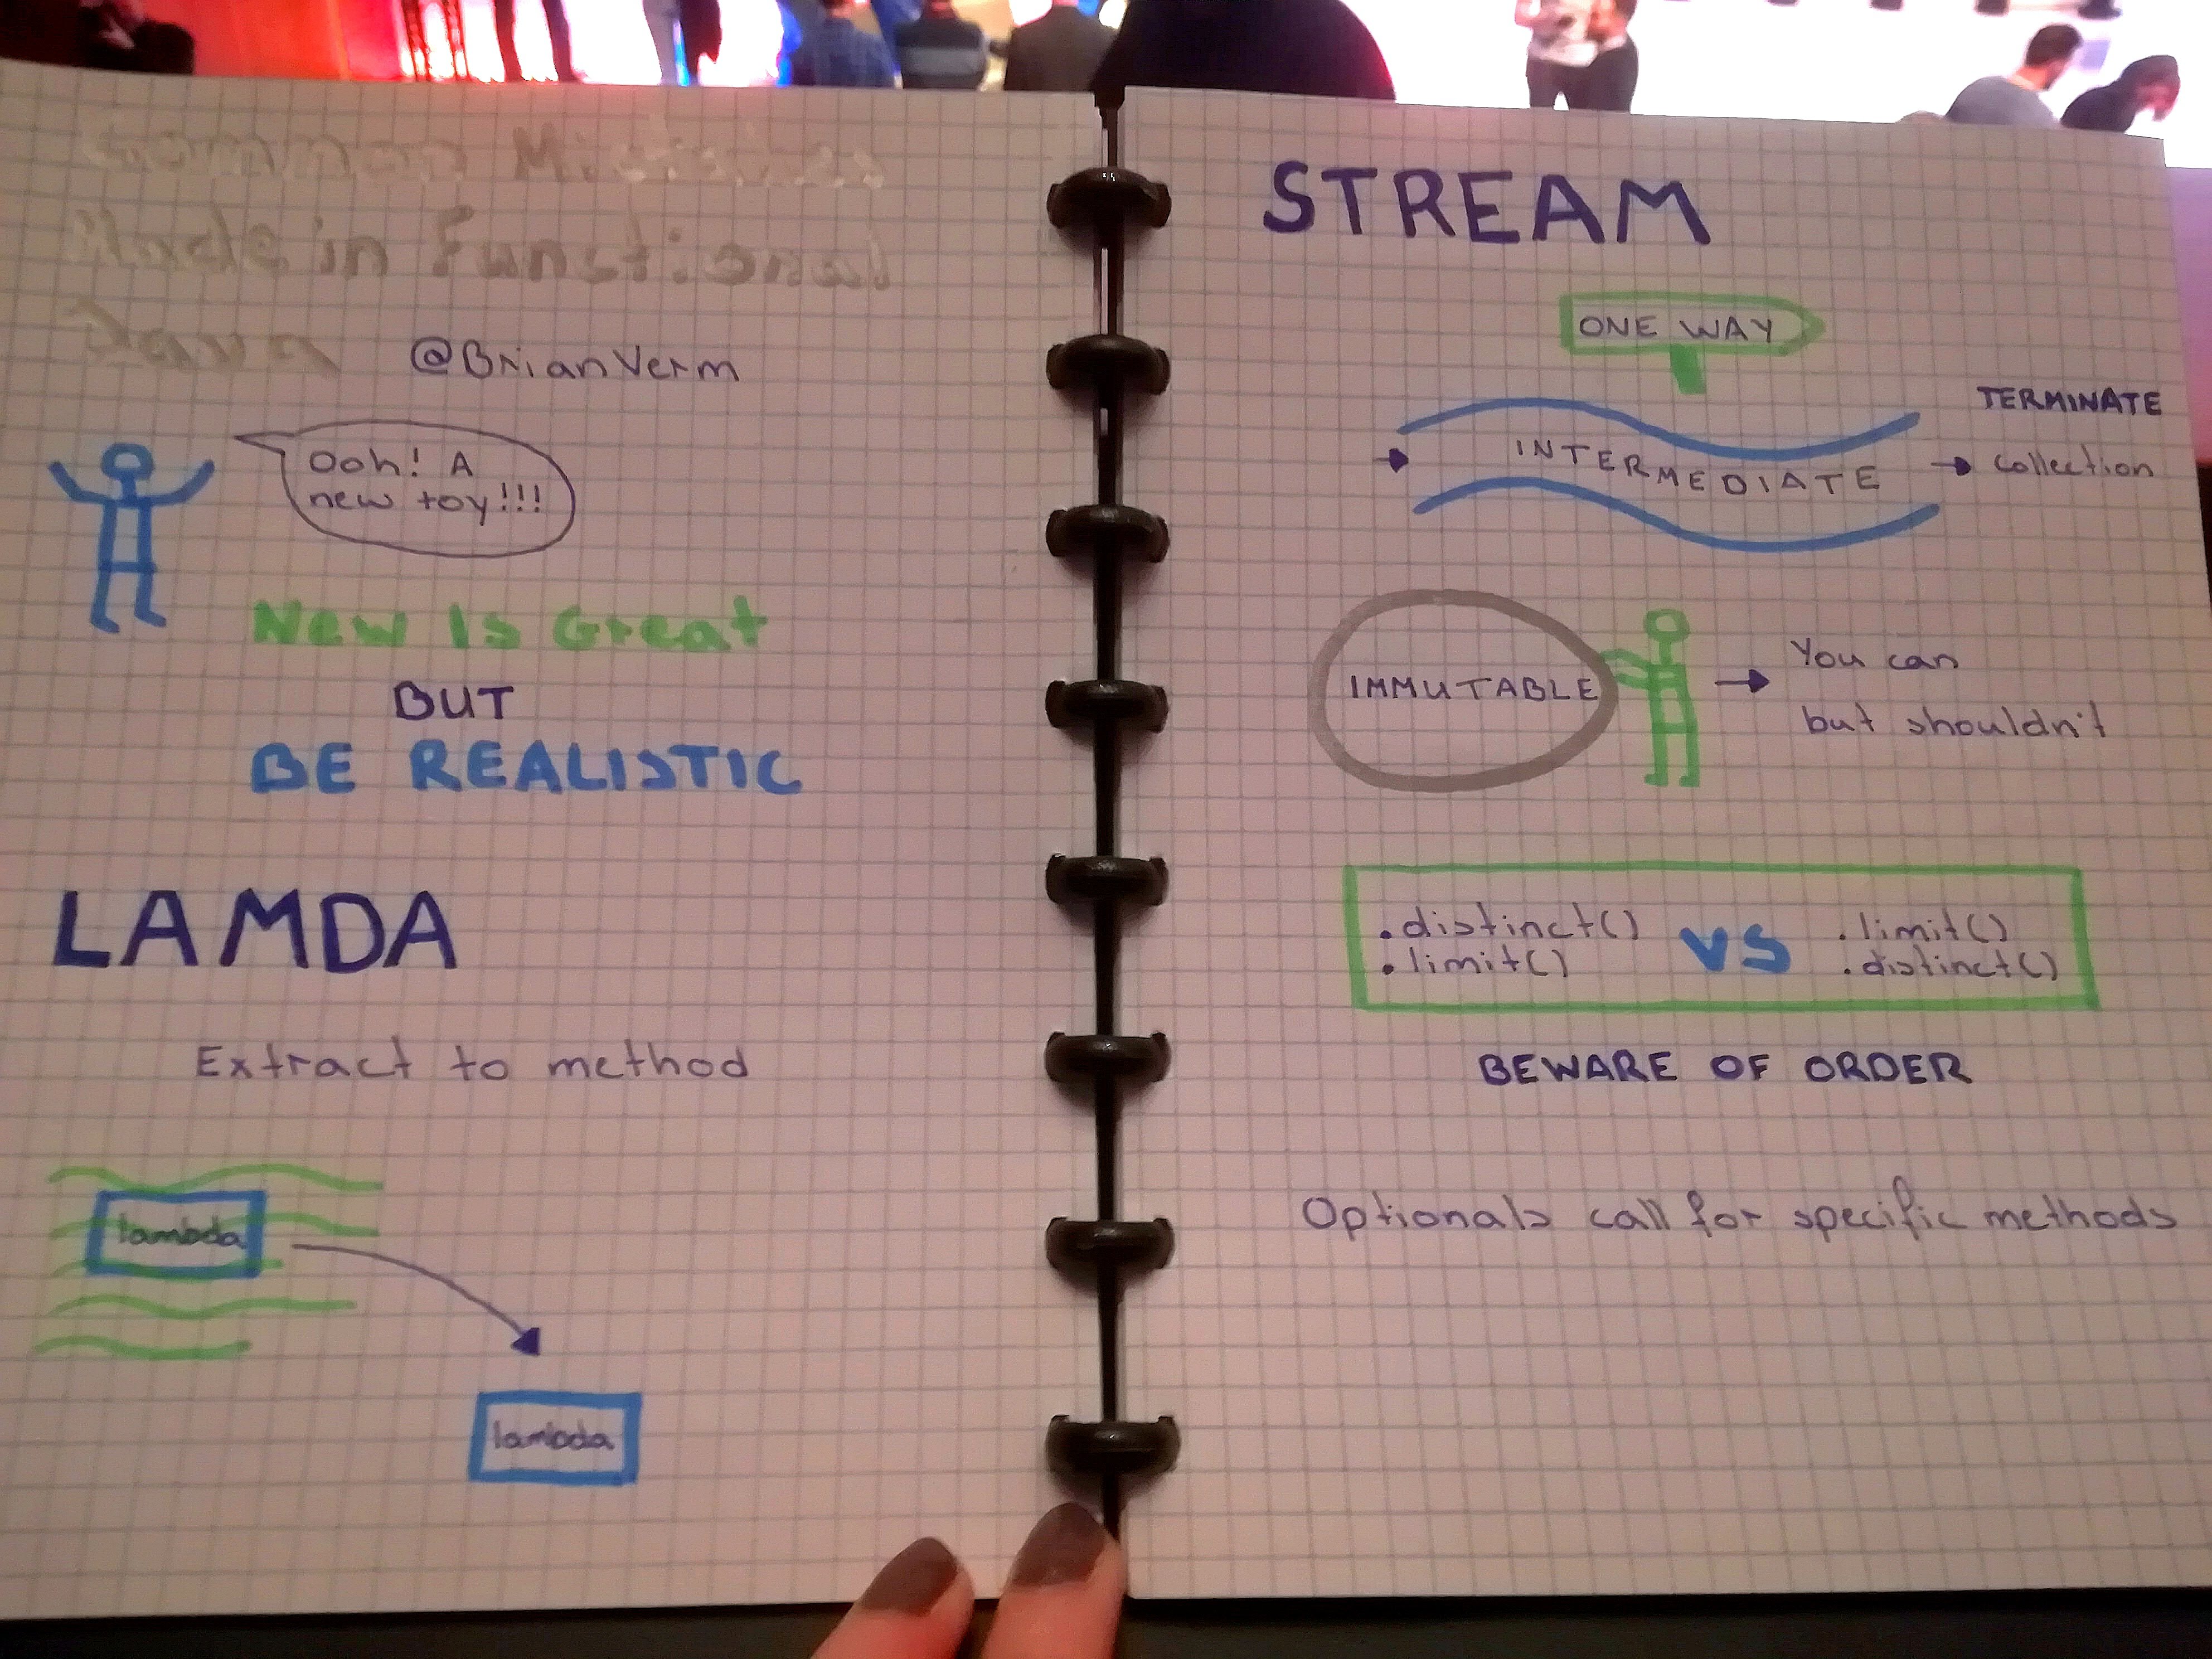 Common Mistakes
Made in Functional
Java
@BrianVerm
Ooh! A
new toy!!!
New Is Great
BUT
BE REALISTIC
LAMDA
Extract to method
lambda
lambda
STREAM
ONE WAY
INTERMEDIATE
TERMINATE
collection
IMMUTABLE
You can
but shouldn't
.distinct()
.limit()
VS
.limit()
.distinct()
BEWARE OF ORDER
Optionals call for specific methods